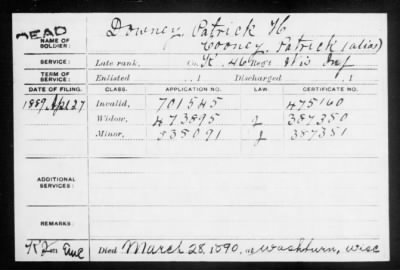 DEAD
NAME OF SOLDIER: Downey, Patrick H
Cooney, Patrick (alias)
SERVICE: Late rank, Co. K. 46 Reg't Wis Inf
TERM OF SERVICE: Enlisted , 1 Discharged , 1
DATE OF FILING. CLASS. APPLICATION NO. LAW. CERTIFICATE NO.
1889 Apl 27 Invalid, 701545 475160
Widow, 473895 387350
Minor, 535091 387351
ADDITIONAL SERVICES:
REMARKS:
Died March 28, 1890, at Washburn, Wisc